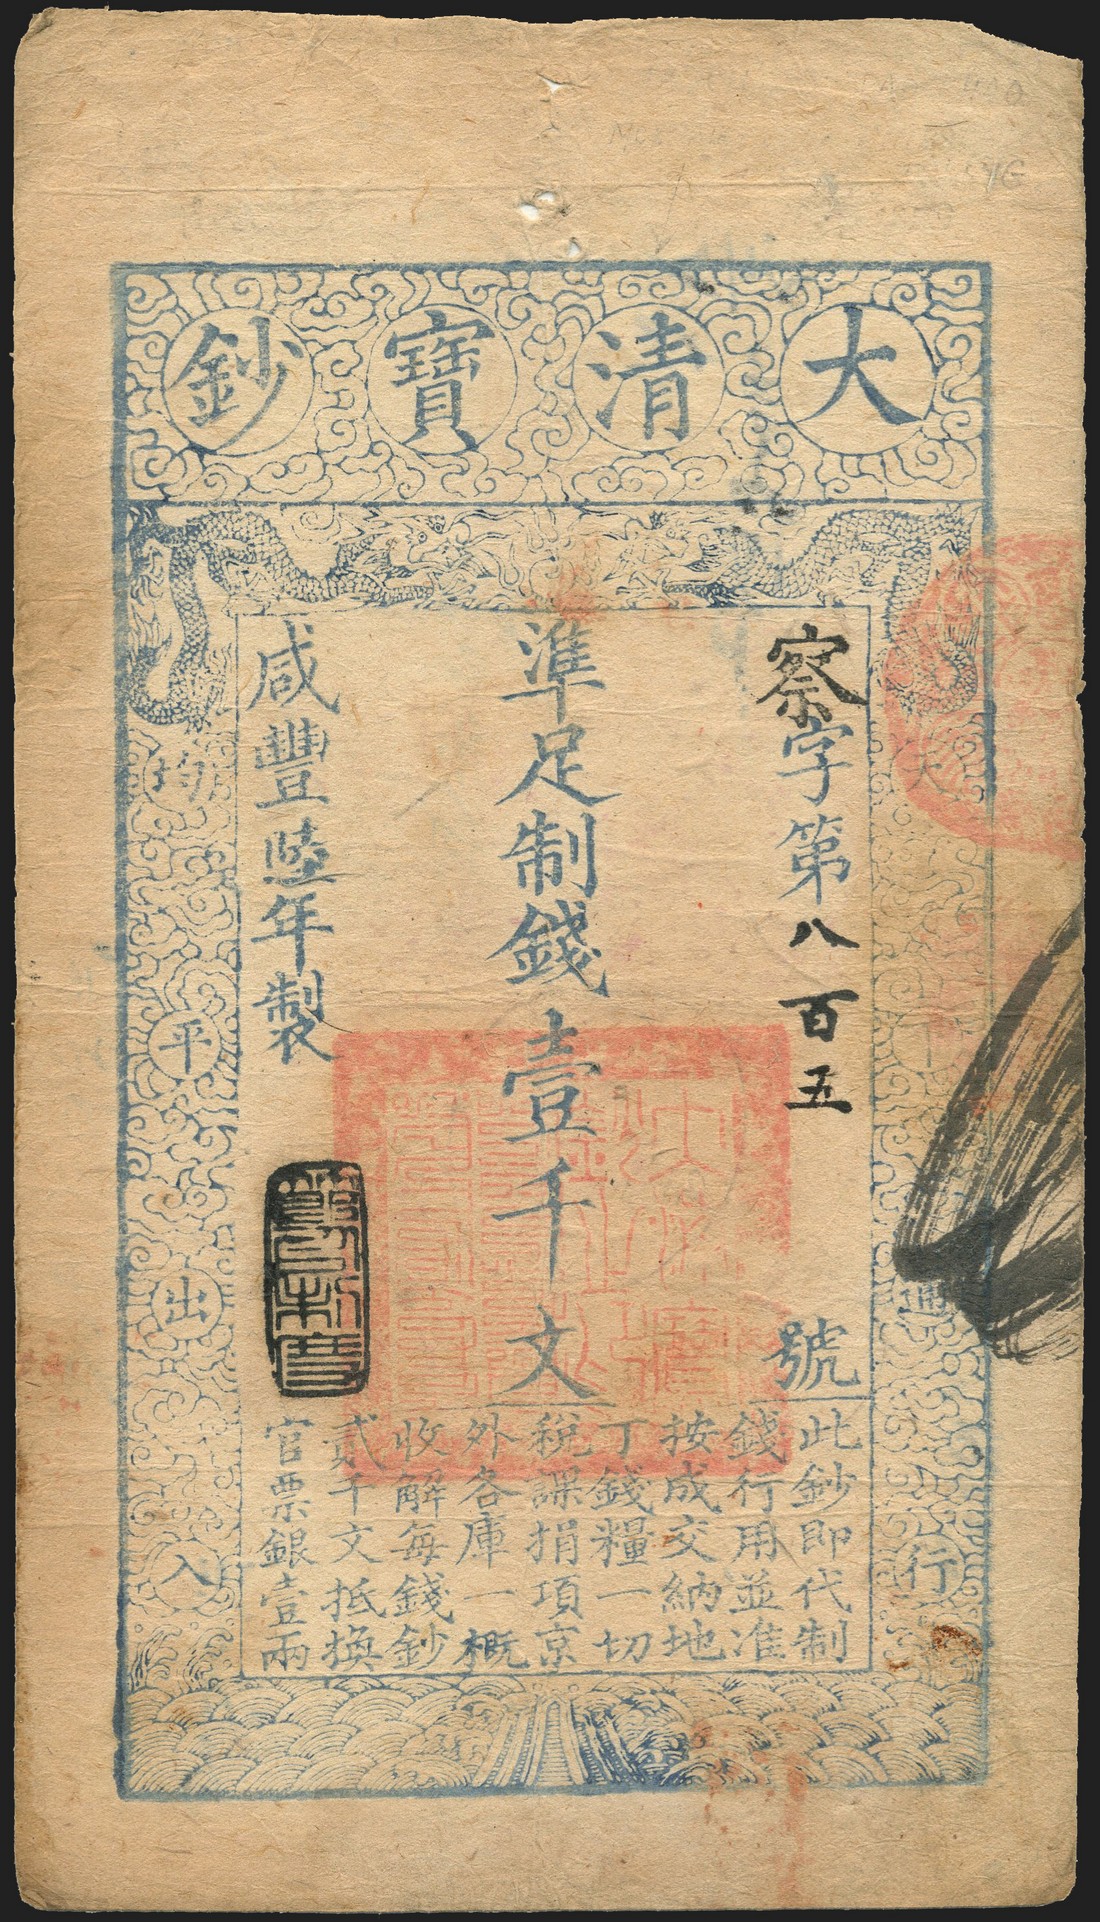 大清寶鈔
察字第八百五號
準足制錢壹千文
咸豐陸年製
天
通行
均平出入
此鈔即代制
錢行用並准
按成交納地
丁錢糧一切
稅課捐項京
外各庫一概
收解每錢鈔
貳千文抵換
官票銀壹兩